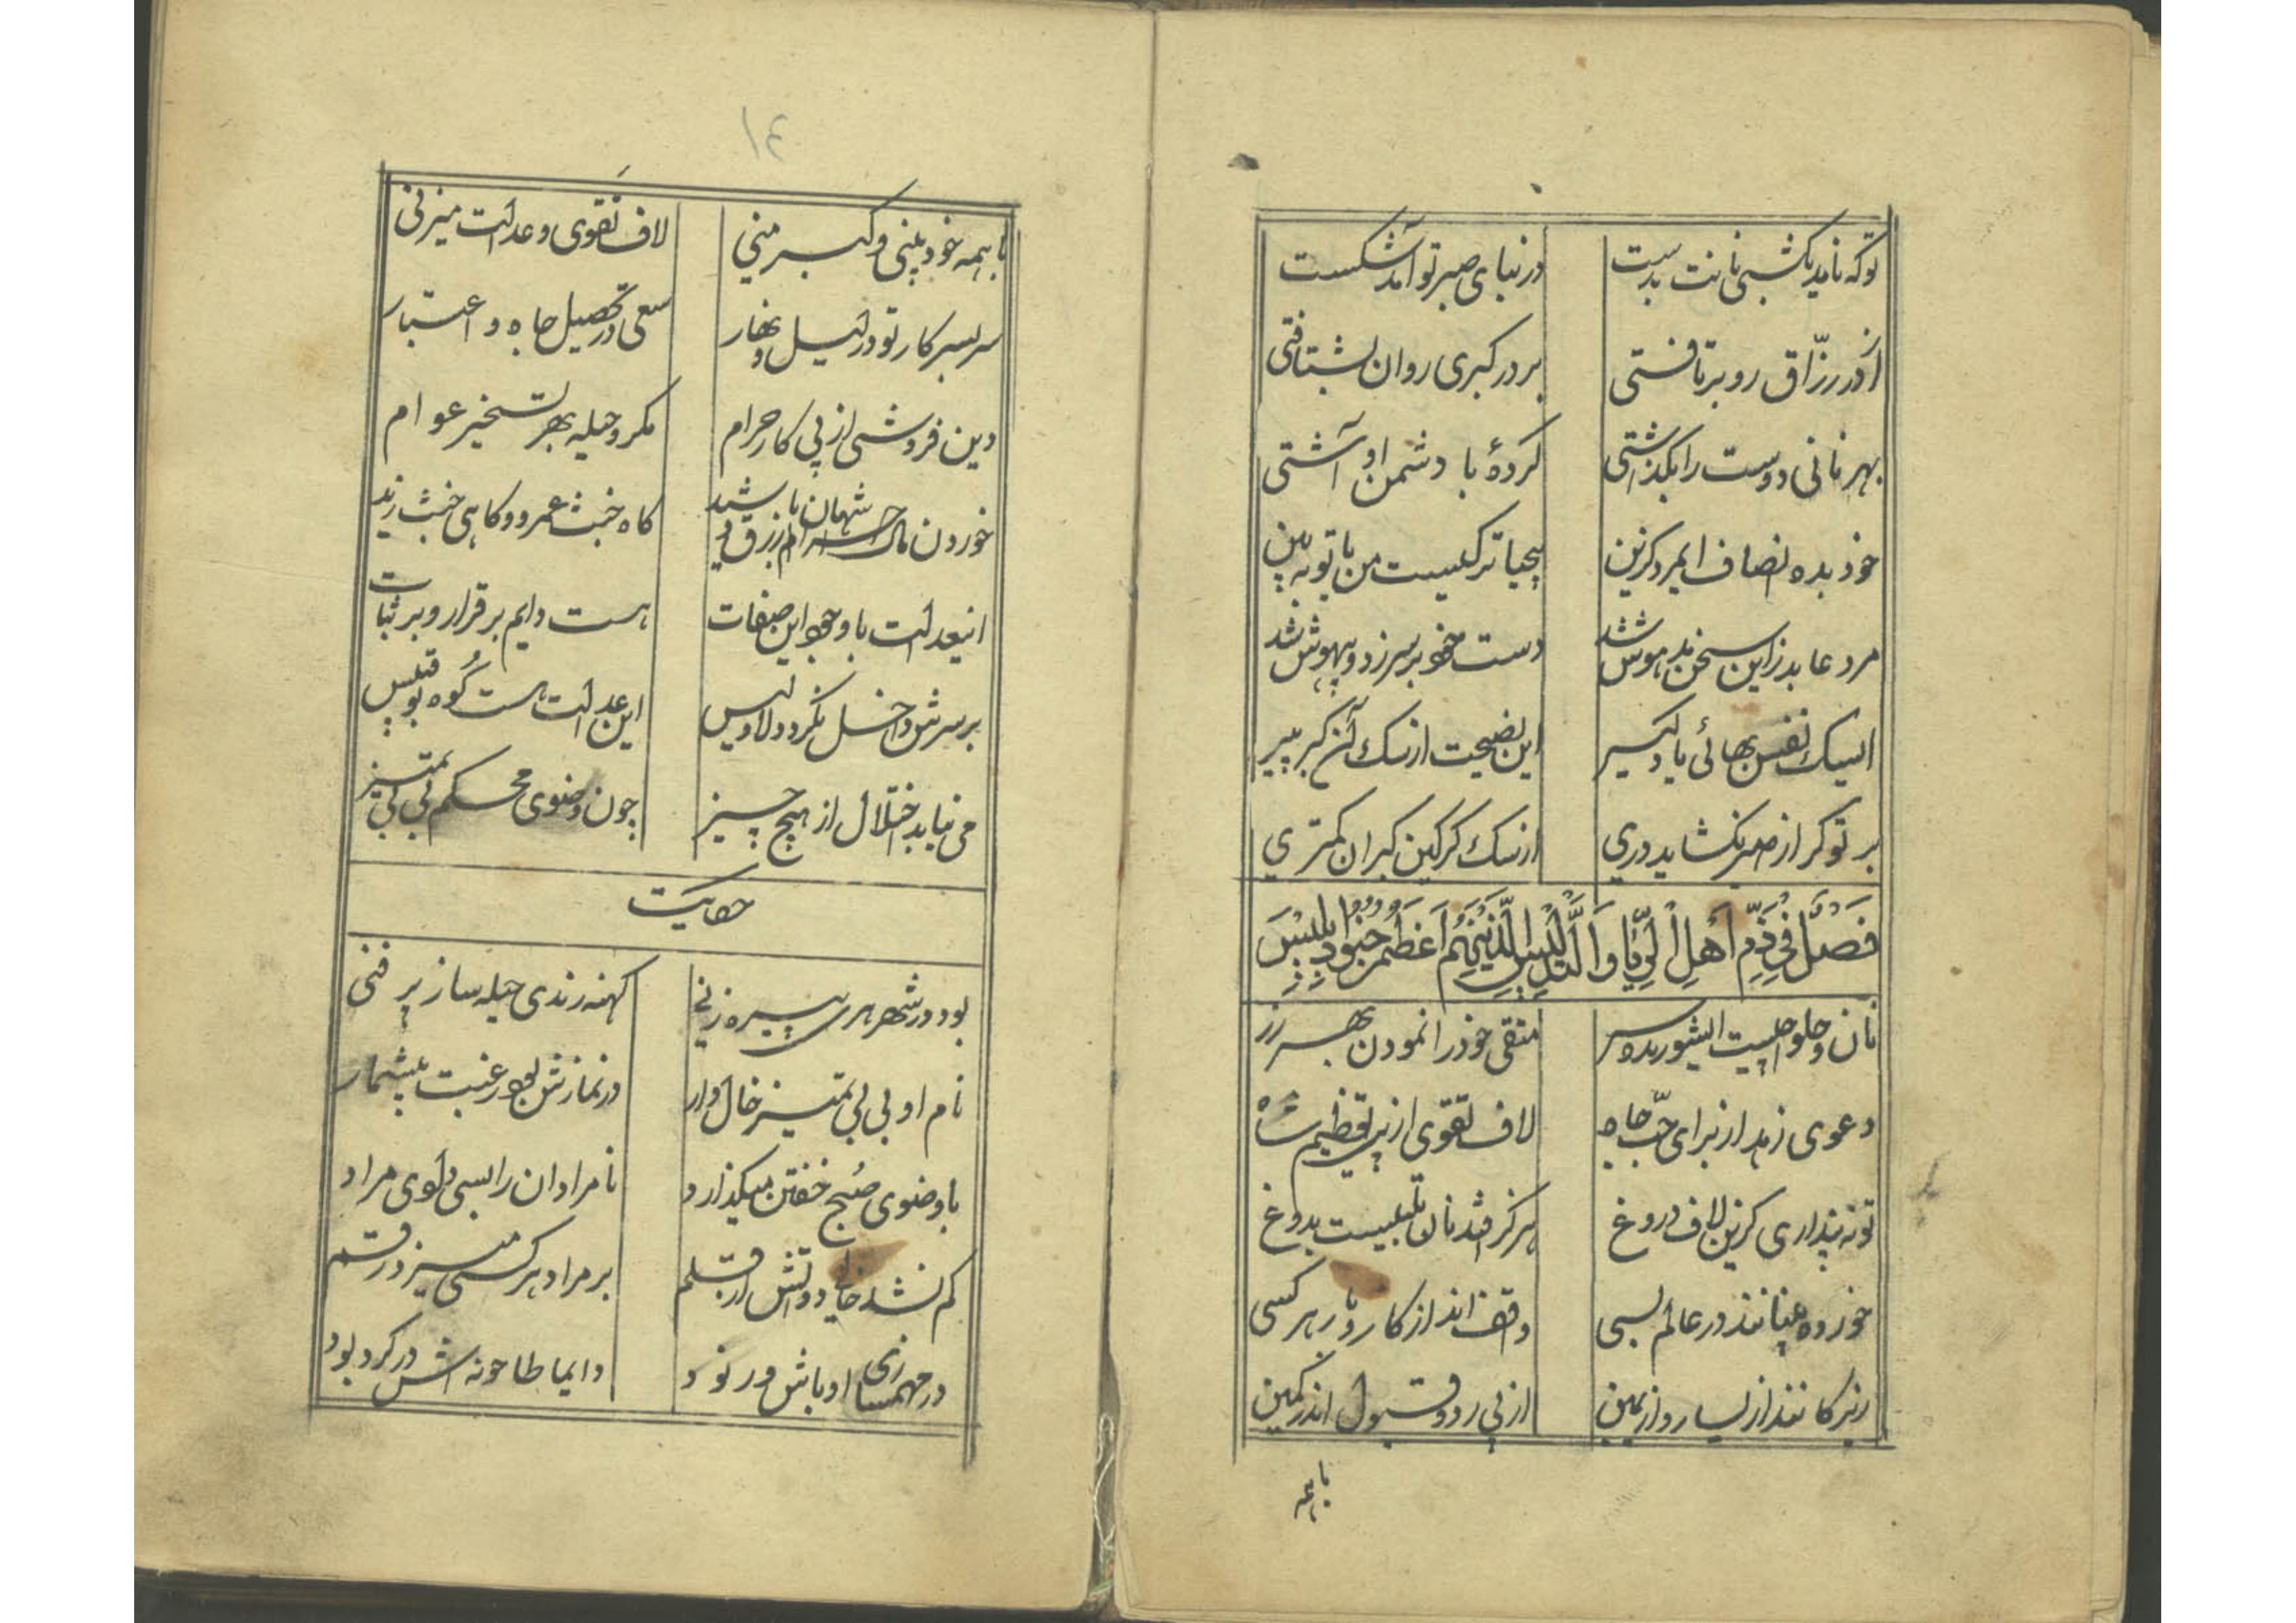 توکه نامد یکشبی نانت بدست در بنای صبر تو آمد شکست
از در رزّاق رو برتافتی بر در کبری روان بشتافتی
بهر نانی دوست را بکذاشتی کردهٔ با دشمن او آشتی
خود بده انصاف ایمرد کزین بیحیاتر کیست من یا تو ببین
مرد عابد زاین سخن مدهوش شد دست خود بر سر زد و بیهوش شد
ای سک نفس بهائی یاد کیر این نصیحت از سک آن کبر پیر
بر تو کر از صبر نکشاید دری از سک کرکین کبران کمتری
فَصلٌ فی ذَمِّ اَهلِ الرِّیا وَالتَّلبیسِ الَّذینَ هُم اَعظَمُ جُنُودِ اِبلیسَ
نان و حلوا چیست ایشوریده سر متقی خود را نمودن بهر زر
دعوی زهد از برای حبّ جاه لاف تقوی از پی تعظیم شاه
تو نه پنداری کزین لاف دروغ هرکز افتد نان تلبیست بدوغ
خورده بینانند در عالم بسی واقف‌اند از کار و بار هر کسی
زیرکانند از یسار و از یمین از پی رد و قبول اندر کمین
با همه
١٤
با همه خود بینی و کبر منی لاف تقوی و عدالت میزنی
سر بسر کار تو در لیل و نهار سعی در تحصیل جاه و اعتبار
دین فروشی از پی کار حرام مکر و حیله بهر تسخیر عوام
خوردن مال شهان با زرق و شید حرام کاه خبث عمرو و کاهی خبث زید
اینعدالت با وجود این صفات هست دایم بر قرار و بر ثبات
بر سرش داخل نکردد لا و لیس این عدالت هست کوه بوقبیس
می نیابد اختلال از هیچ چیز چون وضوی محکم بی بی تمیز
حکایت
بود در شهر هری پیره زنی کهنه رندی حیله ساز پر فنی
نام او بی بی تمیز خال دار در نمازش بود رغبت بیشمار
با وضوی صبح خفتن میکذارد نامرادان را بسی دادی مراد
کم نشد خالی دواتش از قلم بر مراد هر کسی میزد رقم
در مهمسازی اوباش و رنود دایما طاحونه اش در کرد بود